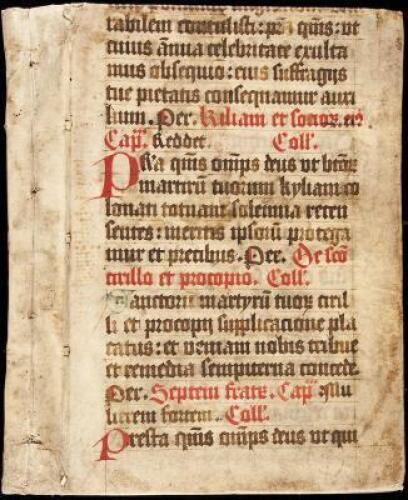 rabilem contulisti: pr̄ q̄ms: vt
cuius ānua celebritate exulta
mus obsequio: eius suffragijs
tue pietatis consequamur auxi
lium. Per. Kiliani et socior. eī
Cap̄. Reddet. Coll̄.
Pr̄a q̄ms om̄ps deus vt btōr
martirū tuorum kyliani co
lonati totnani solemnia recen
sentes: meritis ipsorū protega
mur et precibus. Per. De scō
cirillo et procopio. Coll̄.
Sanctorū martyrū tuor ciril
li et procopij supplicacione pla
catus: et veniam nobis tribue
et remedia sempiterna concede
Per. Septem fratr̄. Cap̄. Mu
lierem fortem. Coll̄.
Presta q̄ms om̄ps deus vt qui